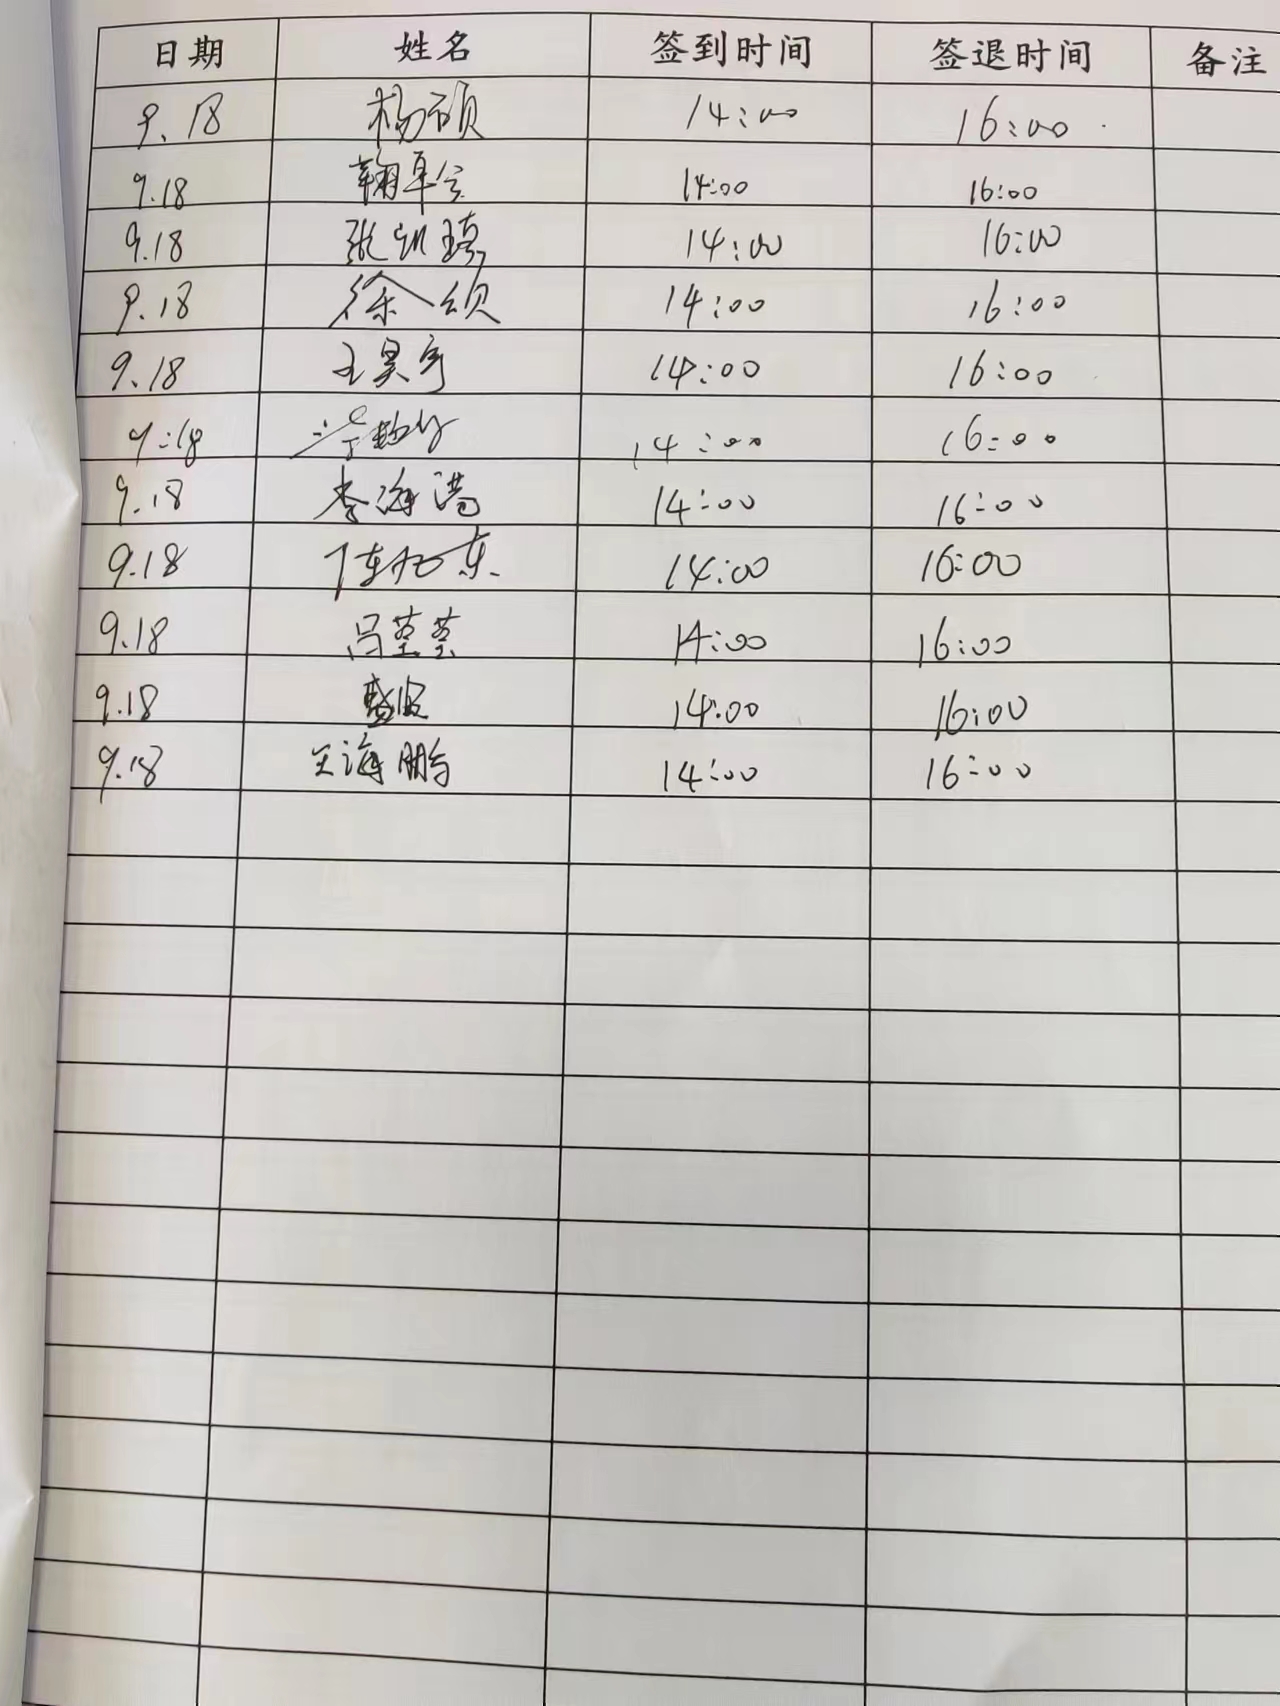 日期 姓名 签到时间 签退时间 备注
9.18 杨硕 14:00 16:00
9.18 14:00 16:00
9.18 张凯 14:00 16:00
9.18 徐颂 14:00 16:00
9.18 王昊宇 14:00 16:00
9.18 14:00 16:00
9.18 李海涛 14:00 16:00
9.18 陈 东 14:00 16:00
9.18 吕茎茎 14:00 16:00
9.18 盛波 14:00 16:00
9.18 王海鹏 14:00 16:00